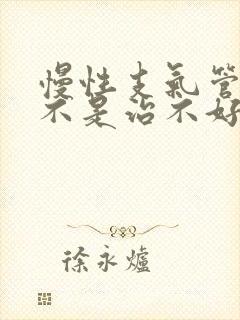 慢性支气管
不是治不好
徐永爐